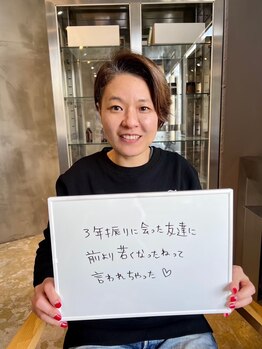 3年振りに会った友達に
前より若くなったねって
言われちゃった♡